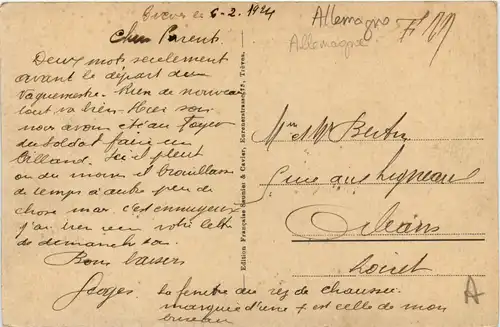 Trèves le 6-2. 1924
Cher Parents
Deux mots seulement
avant le départ du
Vaguemestre. Rien de nouveau
tout va bien. Hier soir
nous avons été au Foyer
du Soldat faire un
billard. Ici il pleut
ou du moins il brouillasse
de temps à autre peu de
chose mais c'est ennuyeux
j'ai bien reçu votre lettre
de dimanche soir.
Bons baisers
Georges.
la fenêtre du rez de chaussée
marquée d'une + est celle de mon
bureau
Edition Française Saunier & Cavier, Eurenerstrasse 77, Trèves.
Allemagne
Allemagne
FM
Mr et Mme Bertin
rue aux Ligneaux
Orléans
Loiret
A